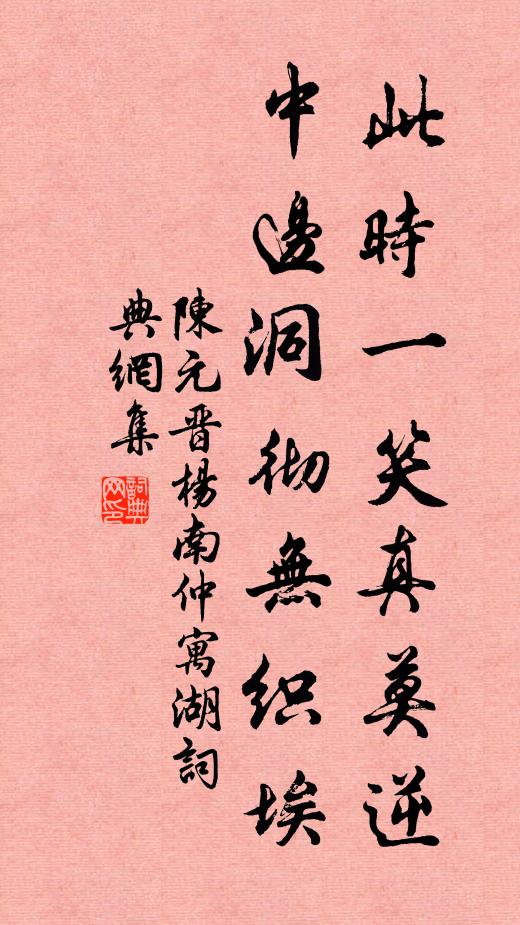 此時一笑真莫逆
中邊洞彻無织埃
陳元晋楊南仲寓湖詞
典網集
詞典網印